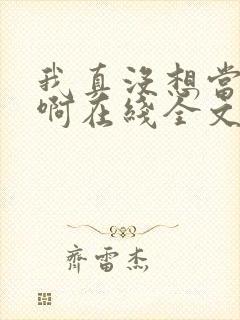 我真没想当
啊在线全文
齐雷杰